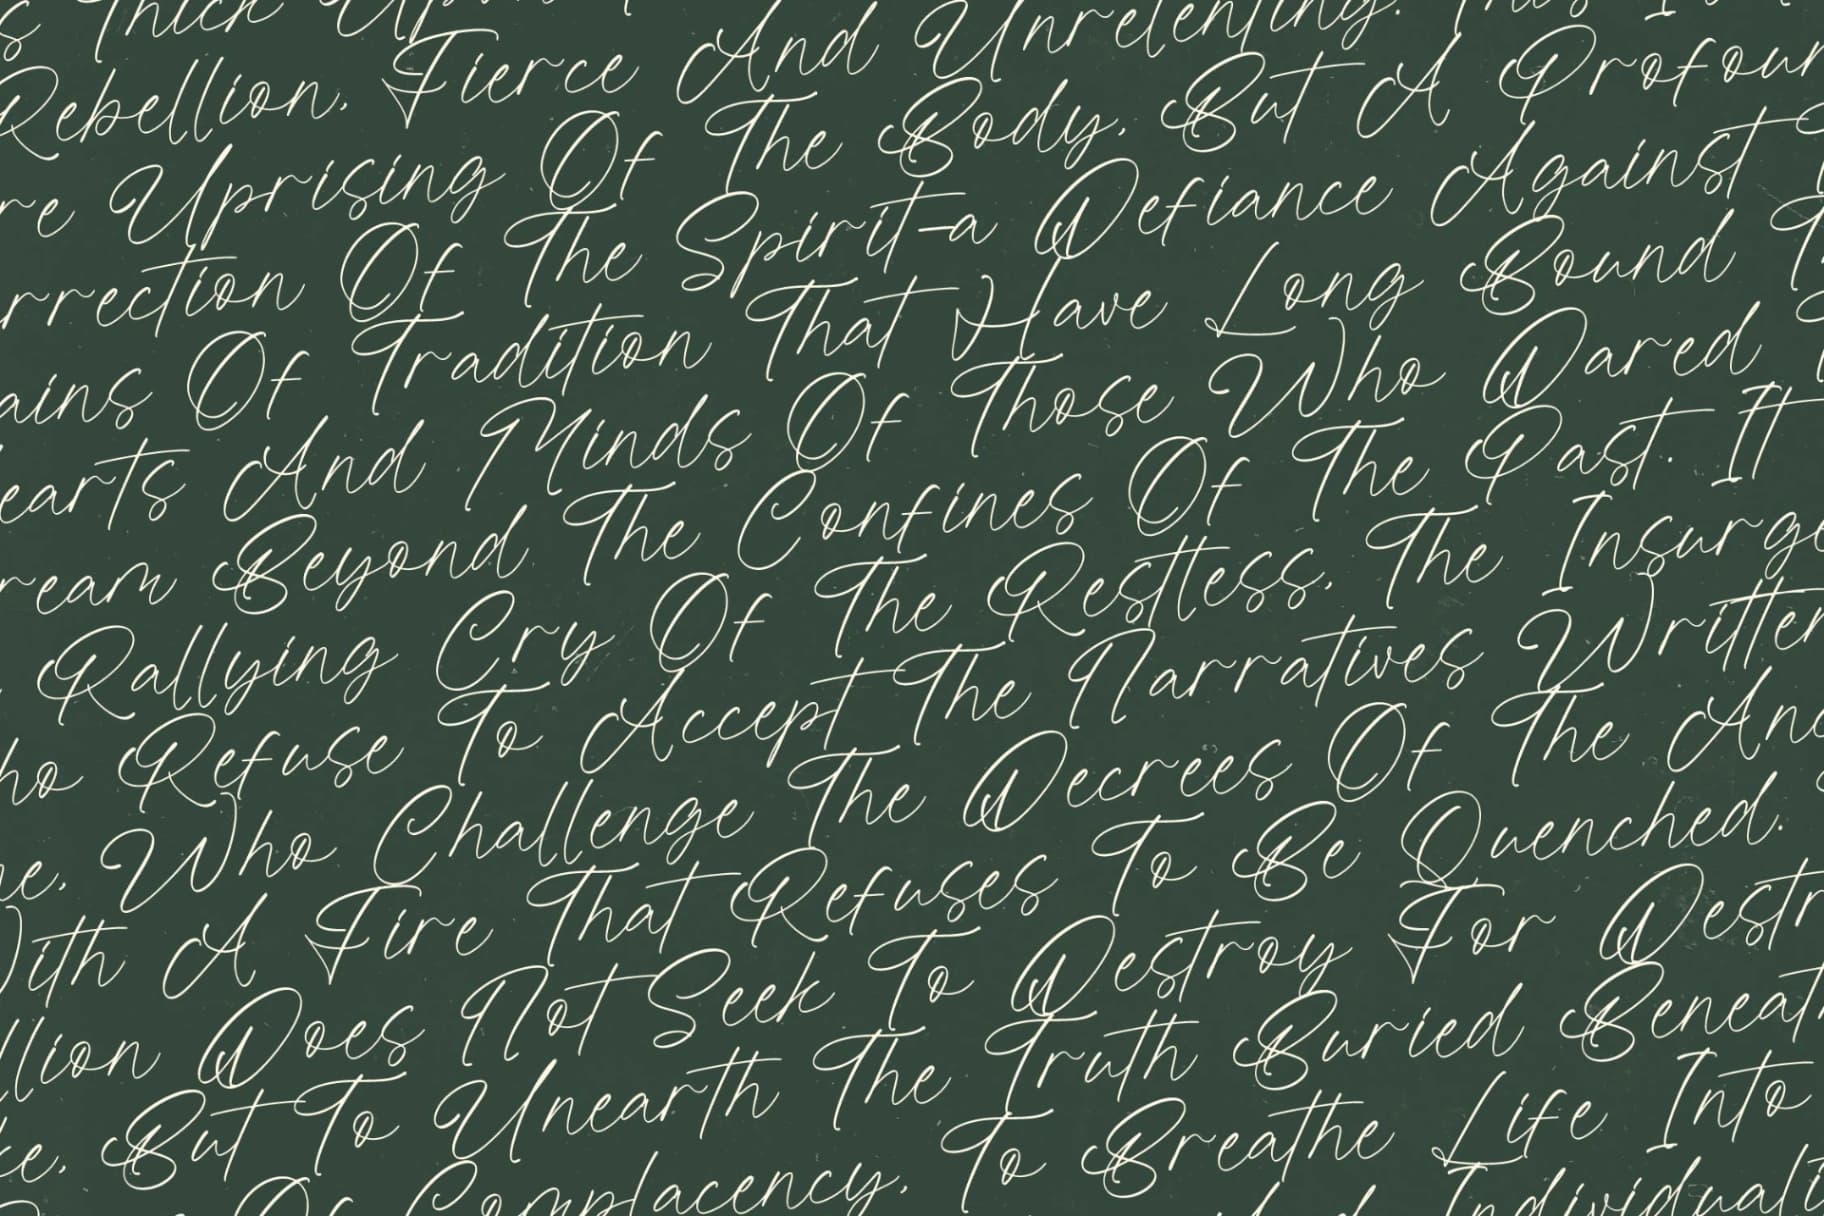 s Thick Upon
Rebellion, Fierce And Unrelenting. This Is
re Uprising Of The Body, But A Profoun
rrection Of The Spirit-a Defiance Against
ains Of Tradition That Have Long Bound
earts And Minds Of Those Who Dared
ream Beyond The Confines Of The Past. It
Rallying Cry Of The Restless, The Insurge
ho Refuse To Accept The Narratives Written
ne, Who Challenge The Decrees Of The And
With A Fire That Refuses To Be Quenched.
llion Does Not Seek To Destroy For Destr
ke, But To Unearth The Truth Buried Beneath
Of Complacency, To Breathe Life Into
Individuali